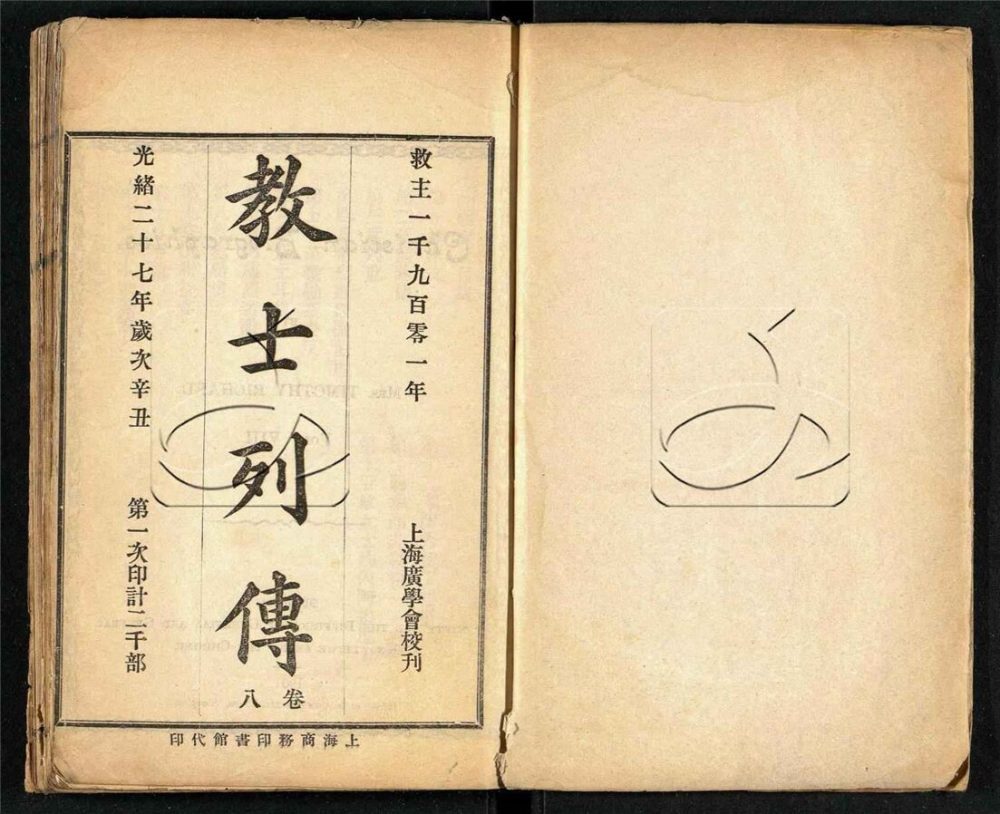 救主一千九百零一年
上海廣學會校刊
教士列傳
卷八
光緒二十七年歲次辛丑
第一次印計二千部
上海商務印書館代印
MRS. TIMOTHY RICHARD